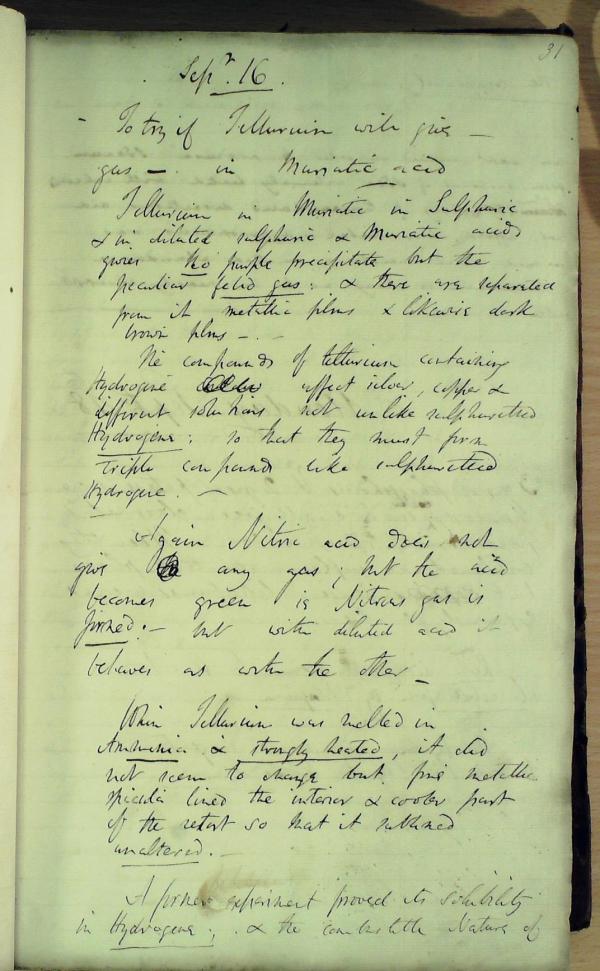 31
Sepr. 16.
- To try if Tellurium will give -
gas - . in Muriatic acid
Tellurium in Muriatic in Sulphuric
& in diluted sulphuric & Muriatic acids
gives no purple precipitate but the
peculiar fetid gas: & there are separated
from it metallic films & likewise dark
brown films - . -
The compounds of tellurium containing
Hydrogene affect silver, copper &
different solutions not unlike sulphuretted
Hydrogene: so that they must form
triple compounds like sulphuretted
Hydrogene. -
Again Nitric acid does not
give any gas; but the acid
becomes green is Nitrous gas is
formed: - but with diluted acid it
behaves as with the other -
When Tellurium was melted in
Ammonia & strongly heated, it did
not seem to change but fine metallic
spicula lined the interior & cooler part
of the retort so that it sublimed
unaltered. -
A former experiment proved its solubility
in Hydrogene; . & the combustible Nature of